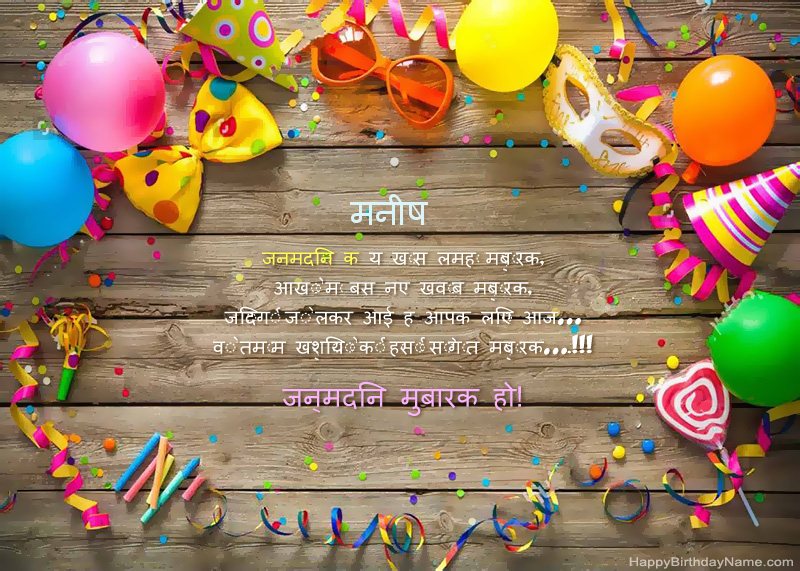 मनीष
जनमदिन क य खास लमहा मबारक,
आखों में बस नए खवाब मबारक,
जिंदगी जो लेकर आई ह आपक लिए आज...
वो तमाम खशियों की हसी सौगात मबारक...!!!
जन्मदिन मुबारक हो!
HappyBirthdayName.com